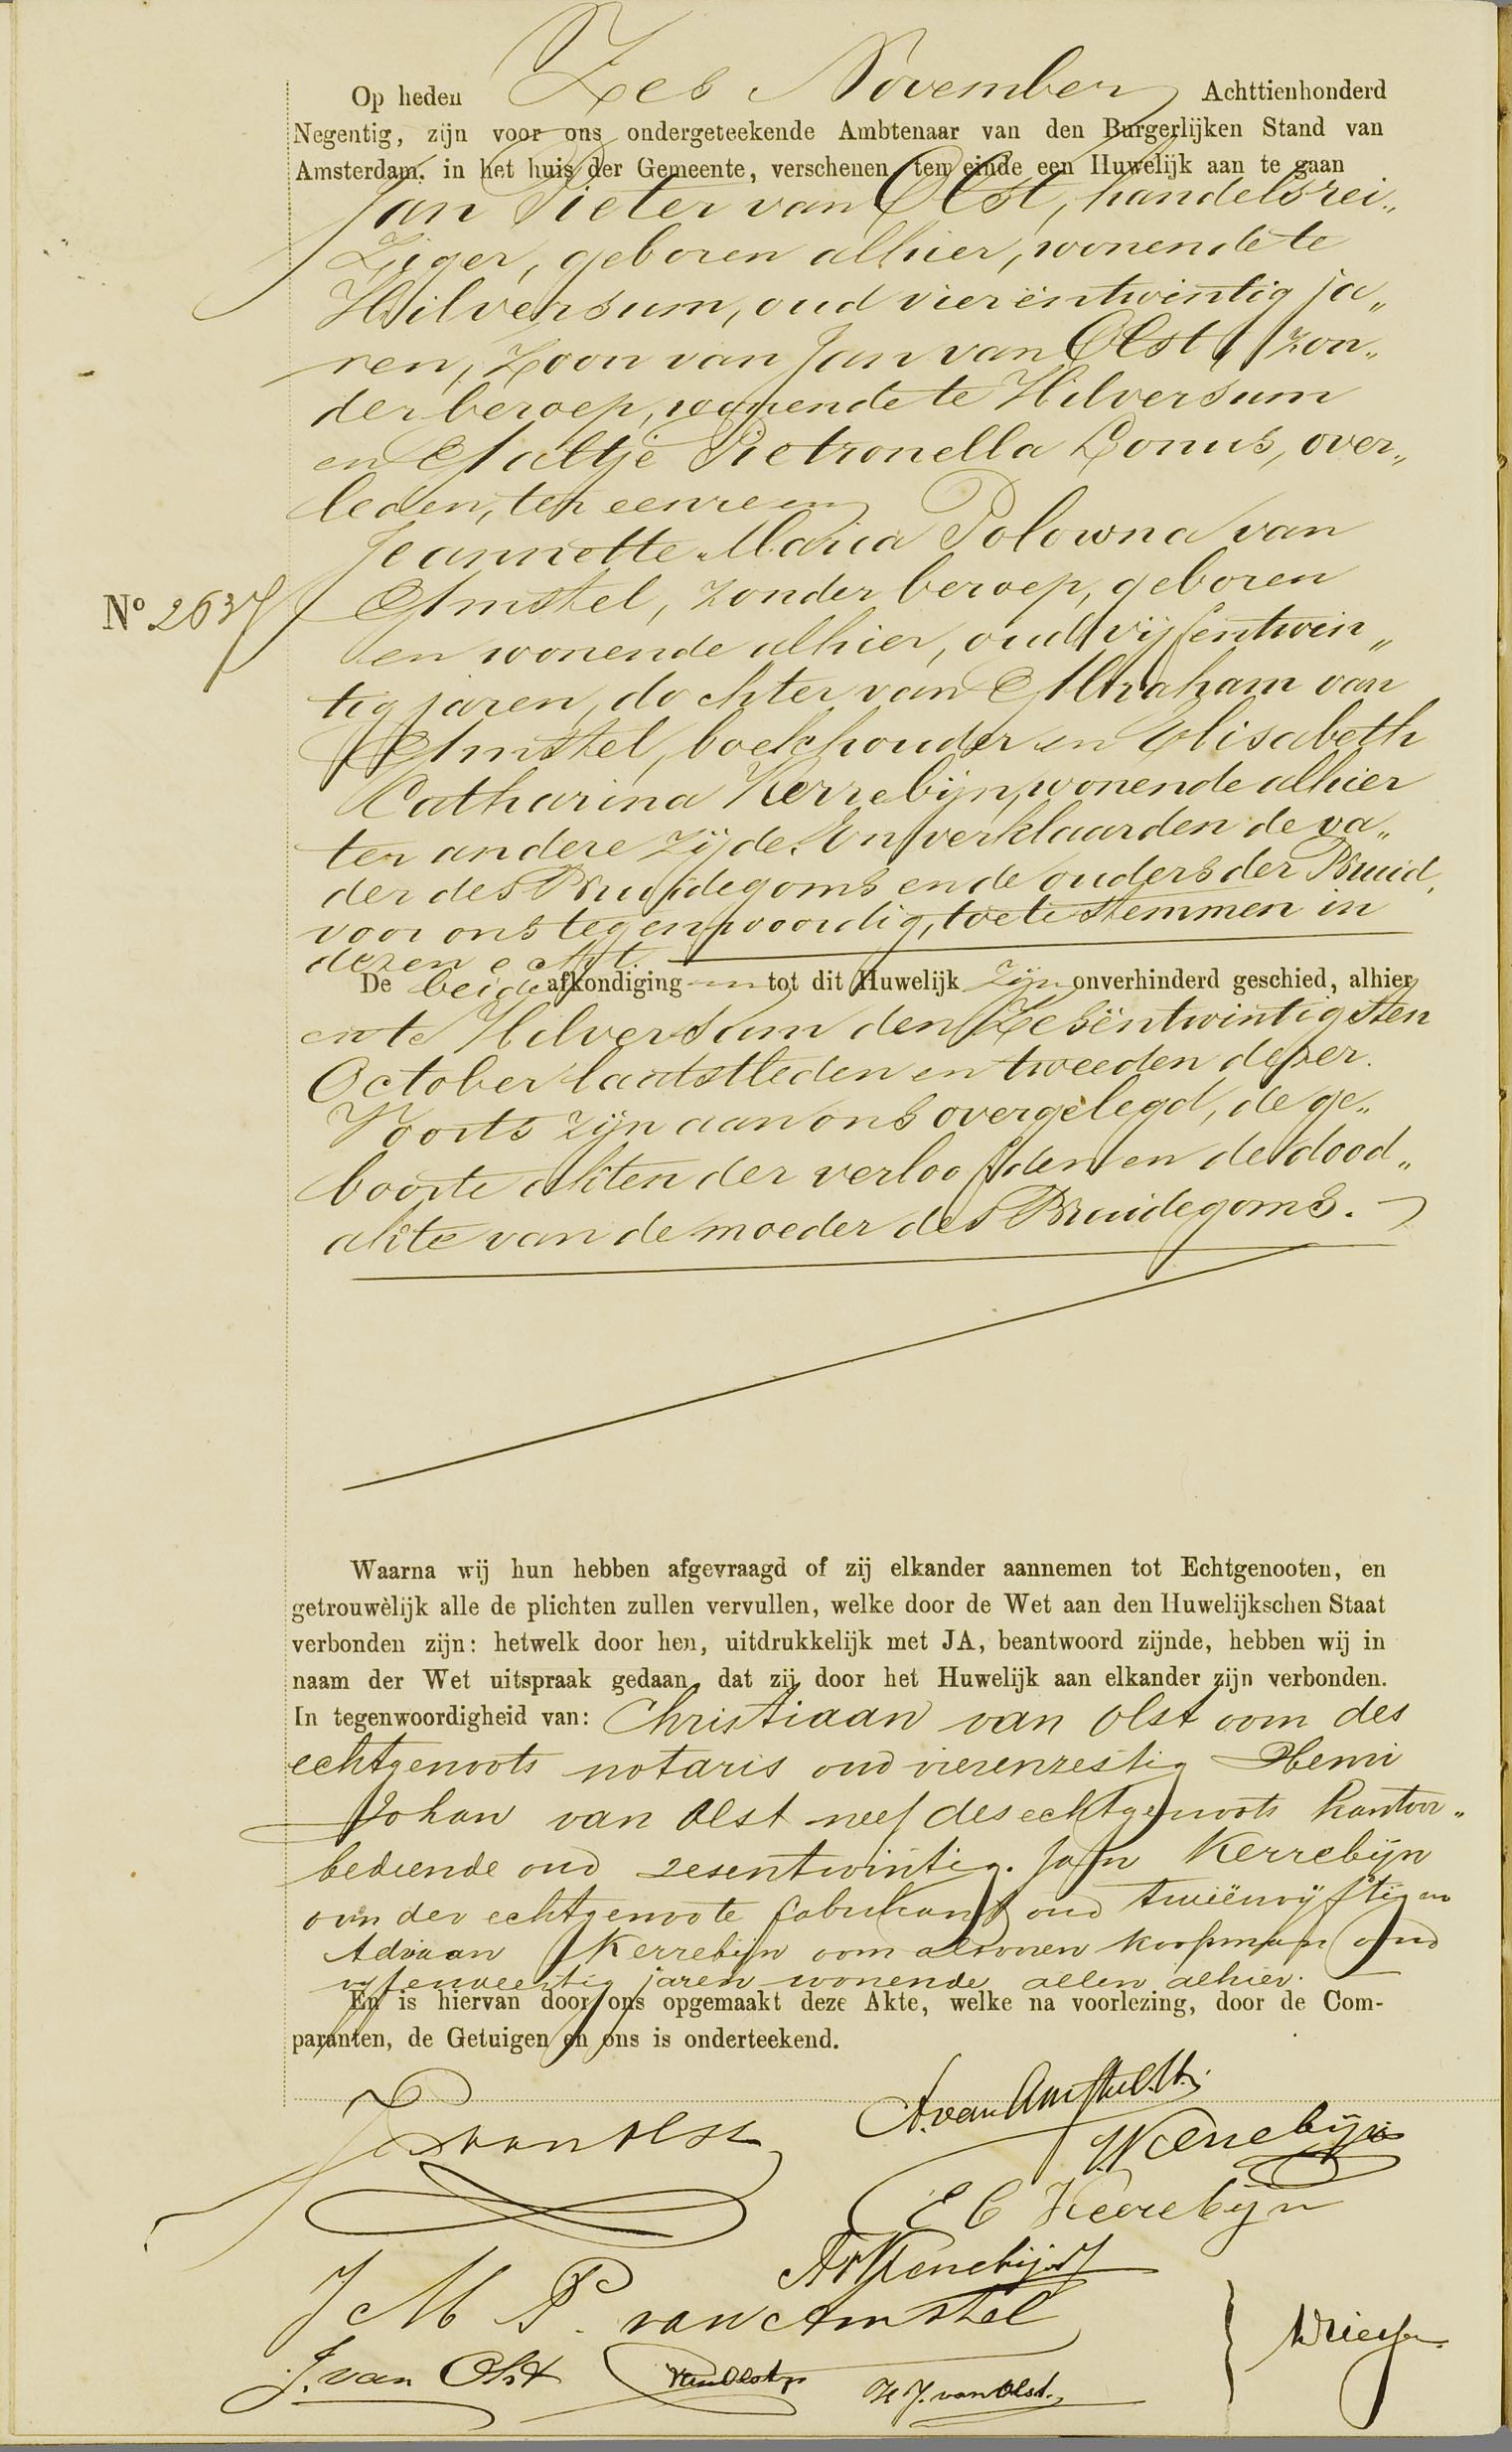 Op heden Zes November Achttienhonderd
Negentig, zijn voor ons ondergeteekende Ambtenaar van den Burgerlijken Stand van
Amsterdam, in het huis der Gemeente, verschenen ten einde een Huwelijk aan te gaan
Jan Pieter van Olst, handelsrei„
ziger, geboren alhier, wonende te
Hilversum, oud vierëntwintig ja„
ren, Zoon van Jan van Olst, zon„
der beroep, wonende te Hilversum
en Aaltje Pietronella Bonus, over„
leden, ter eenre en
Jeannette Maria Polowna van
Nº 2637 Amstel, zonder beroep, geboren
en wonende alhier, oud vijfentwin„
tig jaren, dochter van Abraham van
Amstel, boekhouder en Elisabeth
Catharina Kerrebijn, wonende alhier
ter andere zijde. En verklaarden de va„
der des Bruidegoms en de ouders der Bruid,
voor ons tegenwoordig, toetestemmen in
dezen echt.
De beide afkondigingen tot dit Huwelijk zijn onverhinderd geschied, alhier
en te Hilversum den Zesëntwintigsten
October laatstleden en tweeden dezer.
Voorts zijn aan ons overgelegd, de ge„
boorte akten der verloofden en de dood„
akte van de moeder des Bruidegoms.
Waarna wij hun hebben afgevraagd of zij elkander aannemen tot Echtgenooten, en
getrouwèlijk alle de plichten zullen vervullen, welke door de Wet aan den Huwelijkschen Staat
verbonden zijn: hetwelk door hen, uitdrukkelijk met JA, beantwoord zijnde, hebben wij in
naam der Wet uitspraak gedaan, dat zij door het Huwelijk aan elkander zijn verbonden.
In tegenwoordigheid van: Christiaan van Olst oom des
echtgenoots notaris oud vierenzestig Henri
Johan van Olst neef des echtgenoots kantoor„
bediende oud zesentwintig. Jan Kerrebijn
oom der echtgenoote fabrikant oud tweeënvijftig en
Adriaan Kerrebijn oom alvoren koopman oud
vijfenveertig jaren wonende allen alhier.
En is hiervan door ons opgemaakt deze Akte, welke na voorlezing, door de Com-
paranten, de Getuigen en ons is onderteekend.
JP van Olst
A. van Amstel
J. Kerrebijn
E C Kerrebijn
Ad Kerrebijn
J M P. van Amstel
J. van Olst
van Olst
H J. van Olst.